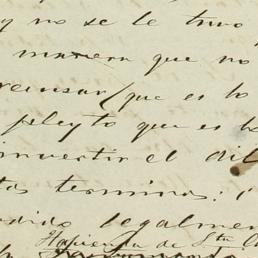 y no se le tuvo
manera que no
recusar (que es lo
pleyto que es lo
invertir el dil
tos terminos:
legalmen
Hacienda de Sta